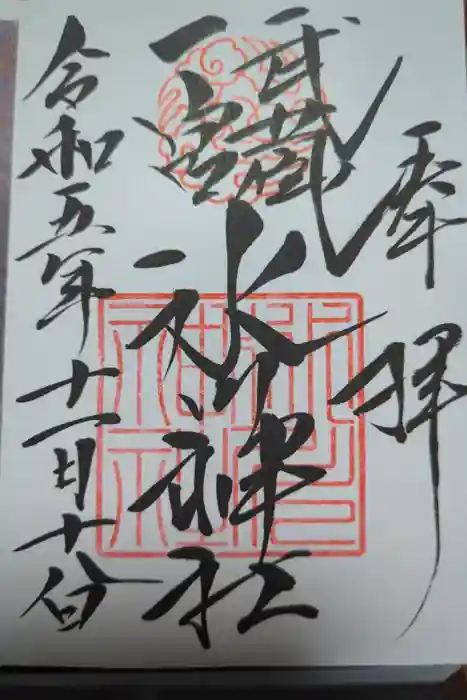 奉拝
武蔵
一宮
氷川神社
令和五年十一月十八日